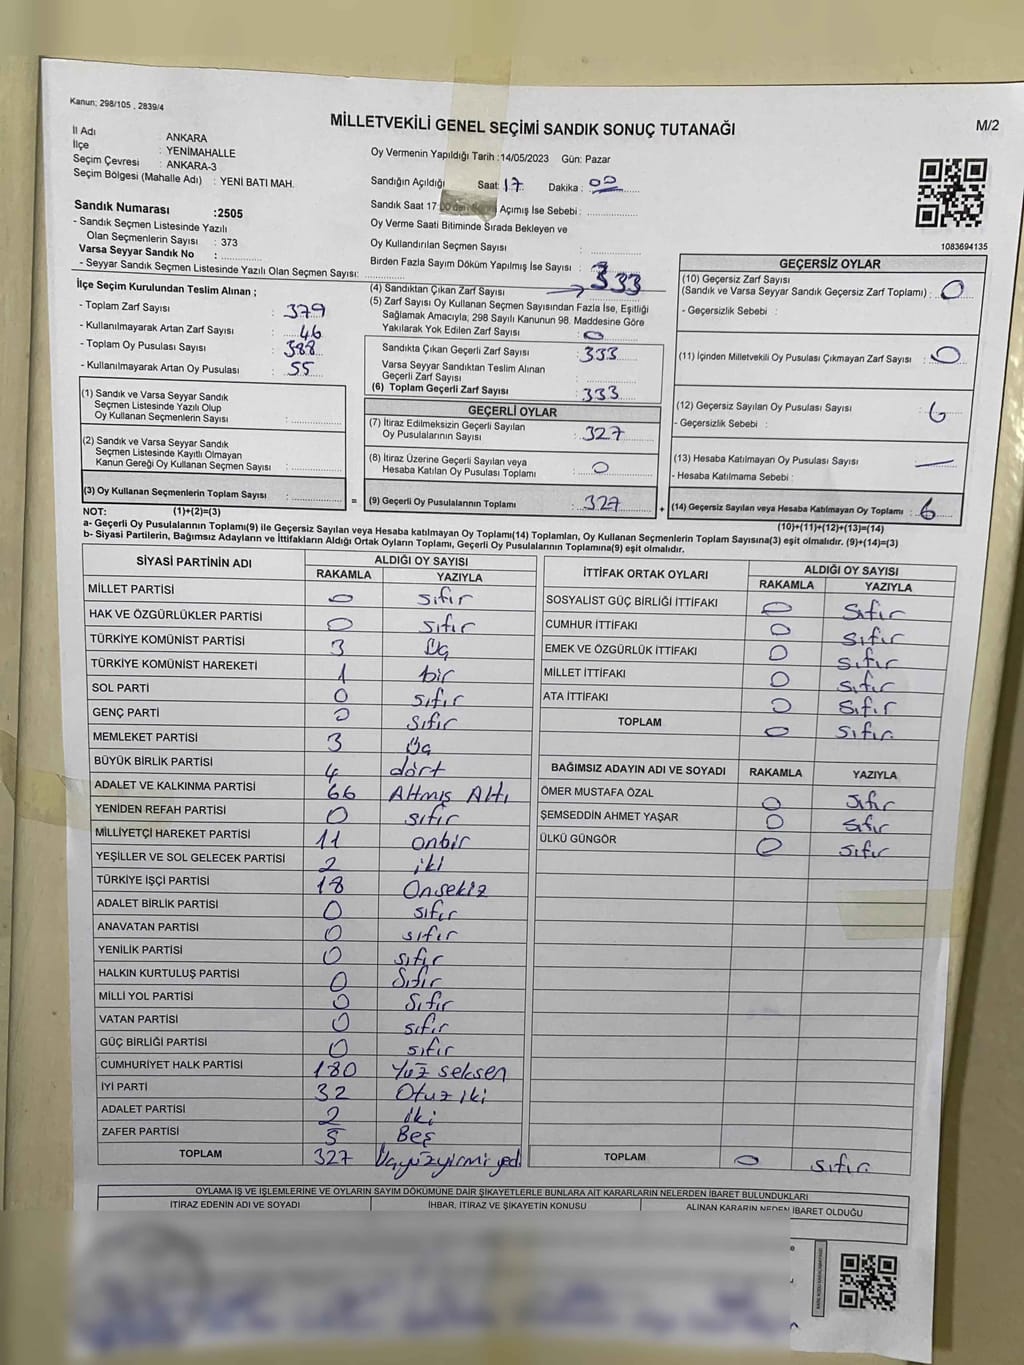 Kanun; 298/105 , 2839/4
MİLLETVEKİLİ GENEL SEÇİMİ SANDIK SONUÇ TUTANAĞI
M/2
İl Adı : ANKARA
İlçe : YENİMAHALLE
Seçim Çevresi : ANKARA-3
Seçim Bölgesi (Mahalle Adı) : YENİ BATI MAH.
Oy Vermenin Yapıldığı Tarih :14/05/2023 Gün: Pazar
Sandığın Açıldığı Saat: 17 Dakika : 00
Sandık Saat 17:00'den Açımış İse Sebebi :
Oy Verme Saati Bitiminde Sırada Bekleyen ve
Oy Kullandırılan Seçmen Sayısı :
Birden Fazla Sayım Döküm Yapılmış İse Sayısı :
1083694135
Sandık Numarası :2505
- Sandık Seçmen Listesinde Yazılı
Olan Seçmenlerin Sayısı : 373
Varsa Seyyar Sandık No :
- Seyyar Sandık Seçmen Listesinde Yazılı Olan Seçmen Sayısı:
İlçe Seçim Kurulundan Teslim Alınan ;
- Toplam Zarf Sayısı : 379
- Kullanılmayarak Artan Zarf Sayısı : 46
- Toplam Oy Pusulası Sayısı : 388
- Kullanılmayarak Artan Oy Pusulası : 55
(1) Sandık ve Varsa Seyyar Sandık
Seçmen Listesinde Yazılı Olup
Oy Kullanan Seçmenlerin Sayısı :
(2) Sandık ve Varsa Seyyar Sandık
Seçmen Listesinde Kayıtlı Olmayan
Kanun Gereği Oy Kullanan Seçmen Sayısı :
(3) Oy Kullanan Seçmenlerin Toplam Sayısı :
(4) Sandıktan Çıkan Zarf Sayısı 333
(5) Zarf Sayısı Oy Kullanan Seçmen Sayısından Fazla İse, Eşitliği
Sağlamak Amacıyla, 298 Sayılı Kanunun 98. Maddesine Göre
Yakılarak Yok Edilen Zarf Sayısı : 0
Sandıkta Çıkan Geçerli Zarf Sayısı : 333
Varsa Seyyar Sandıktan Teslim Alınan
Geçerli Zarf Sayısı :
(6) Toplam Geçerli Zarf Sayısı : 333
GEÇERLİ OYLAR
(7) İtiraz Edilmeksizin Geçerli Sayılan
Oy Pusulalarının Sayısı : 327
(8) İtiraz Üzerine Geçerli Sayılan veya
Hesaba Katılan Oy Pusulası Toplamı : 0
= (9) Geçerli Oy Pusulalarının Toplamı : 327
GEÇERSİZ OYLAR
(10) Geçersiz Zarf Sayısı
(Sandık ve Varsa Seyyar Sandık Geçersiz Zarf Toplamı) : 0
- Geçersizlik Sebebi :
(11) İçinden Milletvekili Oy Pusulası Çıkmayan Zarf Sayısı : 0
(12) Geçersiz Sayılan Oy Pusulası Sayısı : 6
- Geçersizlik Sebebi :
(13) Hesaba Katılmayan Oy Pusulası Sayısı : —
- Hesaba Katılmama Sebebi :
+ (14) Geçersiz Sayılan veya Hesaba Katılmayan Oy Toplamı : 6
NOT: (1)+(2)=(3)
(10)+(11)+(12)+(13)=(14)
a- Geçerli Oy Pusulalarının Toplamı(9) ile Geçersiz Sayılan veya Hesaba katılmayan Oy Toplamı(14) Toplamları, Oy Kullanan Seçmenlerin Toplam Sayısına(3) eşit olmalıdır. (9)+(14)=(3)
b- Siyasi Partilerin, Bağımsız Adayların ve İttifakların Aldığı Ortak Oyların Toplamı, Geçerli Oy Pusulalarının Toplamına(9) eşit olmalıdır.
SİYASİ PARTİNİN ADI ALDIĞI OY SAYISI
RAKAMLA YAZIYLA
MİLLET PARTİSİ 0 sıfır
HAK VE ÖZGÜRLÜKLER PARTİSİ 0 sıfır
TÜRKİYE KOMÜNİST PARTİSİ 3 Üç
TÜRKİYE KOMÜNİST HAREKETİ 1 bir
SOL PARTİ 0 sıfır
GENÇ PARTİ 0 sıfır
MEMLEKET PARTİSİ 3 Üç
BÜYÜK BİRLİK PARTİSİ 4 dört
ADALET VE KALKINMA PARTİSİ 66 Altmış Altı
YENİDEN REFAH PARTİSİ 0 sıfır
MİLLİYETÇİ HAREKET PARTİSİ 11 onbir
YEŞİLLER VE SOL GELECEK PARTİSİ 2 iki
TÜRKİYE İŞÇİ PARTİSİ 18 Onsekiz
ADALET BİRLİK PARTİSİ 0 sıfır
ANAVATAN PARTİSİ 0 sıfır
YENİLİK PARTİSİ 0 sıfır
HALKIN KURTULUŞ PARTİSİ 0 Sıfır
MİLLİ YOL PARTİSİ 0 Sıfır
VATAN PARTİSİ 0 sıfır
GÜÇ BİRLİĞİ PARTİSİ 0 sıfır
CUMHURİYET HALK PARTİSİ 180 Yüz seksen
İYİ PARTİ 32 Otuz iki
ADALET PARTİSİ 2 iki
ZAFER PARTİSİ 5 Beş
TOPLAM 327 Üçyüzyirmi yedi
İTTİFAK ORTAK OYLARI ALDIĞI OY SAYISI
RAKAMLA YAZIYLA
SOSYALİST GÜÇ BİRLİĞİ İTTİFAKI 0 Sıfır
CUMHUR İTTİFAKI 0 sıfır
EMEK VE ÖZGÜRLÜK İTTİFAKI 0 sıfır
MİLLET İTTİFAKI 0 sıfır
ATA İTTİFAKI 0 sıfır
TOPLAM 0 sıfır
BAĞIMSIZ ADAYIN ADI VE SOYADI RAKAMLA YAZIYLA
ÖMER MUSTAFA ÖZAL 0 sıfır
ŞEMSEDDİN AHMET YAŞAR 0 sıfır
ÜLKÜ GÜNGÖR 0 sıfır
TOPLAM 0 sıfır
OYLAMA İŞ VE İŞLEMLERİNE VE OYLARIN SAYIM DÖKÜMÜNE DAİR ŞİKAYETLERLE BUNLARA AİT KARARLARIN NELERDEN İBARET BULUNDUKLARI
İTİRAZ EDENİN ADI VE SOYADI İHBAR, İTİRAZ VE ŞİKAYETİN KONUSU ALINAN KARARIN NEDEN İBARET OLDUĞU